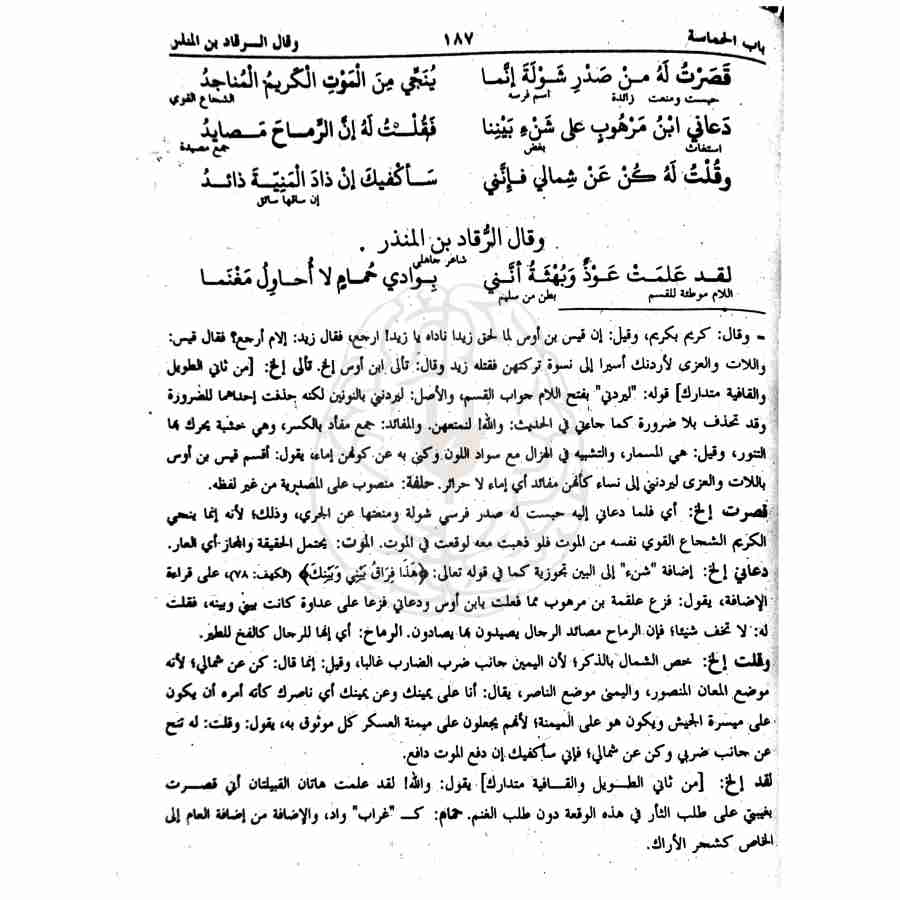 باب الحماسة ١٨٧ وقال الـرقاد بن المنذر
قَصَرْتُ لَهُ مـنْ صَدْرِ شَوْلَةَ إِنَّمـا يُنَجِّي مِنَ الْمَوْتِ الْكَرِيمُ الْمُناجِدُ
حبست ومنعت زائدة اسم فرسه الشجاع القوي
دَعاني ابْنُ مَرْهُوبٍ على شَنْءِ بَيْنِنا فَقُلْـتُ لَهُ إنَّ الرِّماحَ مَـصايِدُ
استغاث بغض جمع مصيدة
وقُلْتُ لَهُ كُنْ عَنْ شِمالي فـإنَّني سَـأكْفيكَ إنْ ذادَ الْمَنِيَّـةَ ذائـدُ
إن ساقها سائق
وقال الرُّقاد بن المنذر
شاعر جاهلي
لقـد عَلِمَـتْ عَوْذٌ وَبُهْثَةُ أنَّـني بِـوادي حُمامٍ لا أُحاوِلُ مَغْنَمـا
اللام موطئة للقسم بطن من سليم
= وقال: كريم بكريم، وقيل: إن قيس بن أوس لما لحق زيدا ناداه يا زيد! ارجع، فقال زيد: إلام أرجع؟ فقال قيس:
واللات والعزى لأردنك أسيرا إلى نسوة تركتهن فقتله زيد وقال: تألى ابن أوس إلخ. تألى إلخ: [من ثاني الطويل
والقافية متدارك] قوله: "ليردني" بفتح اللام جواب القسم، والأصل: ليردنني بالنونين لكنه حذفت إحداهما للضرورة
وقد تحذف بلا ضرورة كما جاءني في الحديث: والله! لتمنعهن. والمفائد: جمع مفأد بالكسر، وهي خشبة يحرك بها
التنور، وقيل: هي المسمار، والتشبيه في الهزال مع سواد اللون وكنى به عن كونهن إماء، يقول: أقسم قيس بن أوس
باللات والعزى ليردنني إلى نساء كأنهن مفائد أي إماء لا حرائر. حلفة: منصوب على المصدرية من غير لفظه.
قصرت إلخ: أي فلما دعاني إليه حبست له صدر فرسي شولة ومنعتها عن الجري، وذلك؛ لأنه إنما ينجي
الكريم الشجاع القوي نفسه من الموت فلو ذهبت معه لوقعت في الموت. الموت: يحتمل الحقيقة والمجاز أي العار.
دعاني إلخ: إضافة "شنء" إلى البين تجوزية كما في قوله تعالى: ﴿هَذَا فِرَاقُ بَيْنِي وَبَيْنِكَ﴾ (الكهف: ٧٨)، على قراءة
الإضافة، يقول: فزع علقمة بن مرهوب مما فعلت بابن أوس ودعاني فزعا على عداوة كانت بيني وبينه، فقلت
له: لا تخف شيئا؛ فإن الرماح مصائد الرجال يصيدون بها يصادون. الرماح: أي إنها للرجال كالفخ للطير.
وقلت إلخ: خص الشمال بالذكر؛ لأن اليمين جانب ضرب الضارب غالبا، وقيل: إنما قال: كن عن شمالي؛ لأنه
موضع المعان المنصور، واليمنى موضع الناصر، يقال: أنا على يمينك وعن يمينك أي ناصرك كأنه أمره أن يكون
على ميسرة الجيش ويكون هو على الميمنة؛ لأنهم يجعلون على ميمنة العسكر كل موثوق به، يقول: وقلت: له تنح
عن جانب ضربي وكن عن شمالي؛ فإني سأكفيك إن دفع الموت دافع.
لقد إلخ: [من ثاني الطـويل والقـافية متدارك] يقول: والله! لقد علمت هاتان القبيلتان أني قصـرت
بغيتي على طلب الثأر في هذه الوقعة دون طلب الغنم. حمام: كـ "غراب" واد، والإضافة من إضافة العام إلى
الخاص كشجر الأراك.